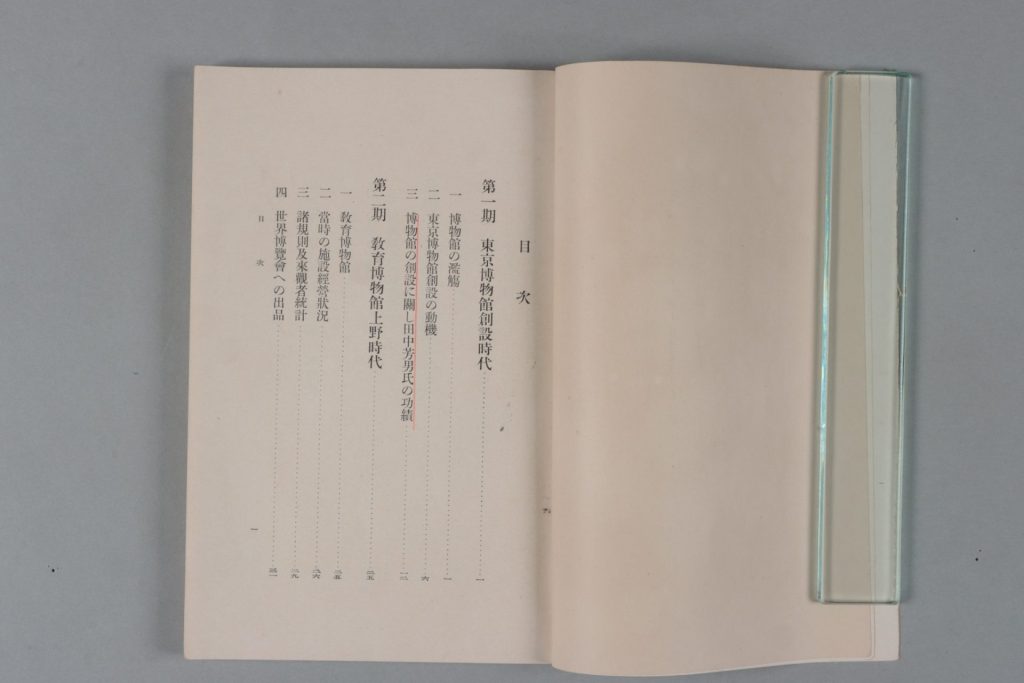 目次
第一期 東京博物館創設時代……一
一 博物館の濫觴……一
二 東京博物館創設の動機……六
三 博物館の創設に關し田中芳男氏の功績……一二
第二期 教育博物館上野時代……二五
一 教育博物館……二五
二 當時の施設經營狀況……二六
三 諸規則及來觀者統計……二九
四 世界博覽會への出品
目次
一